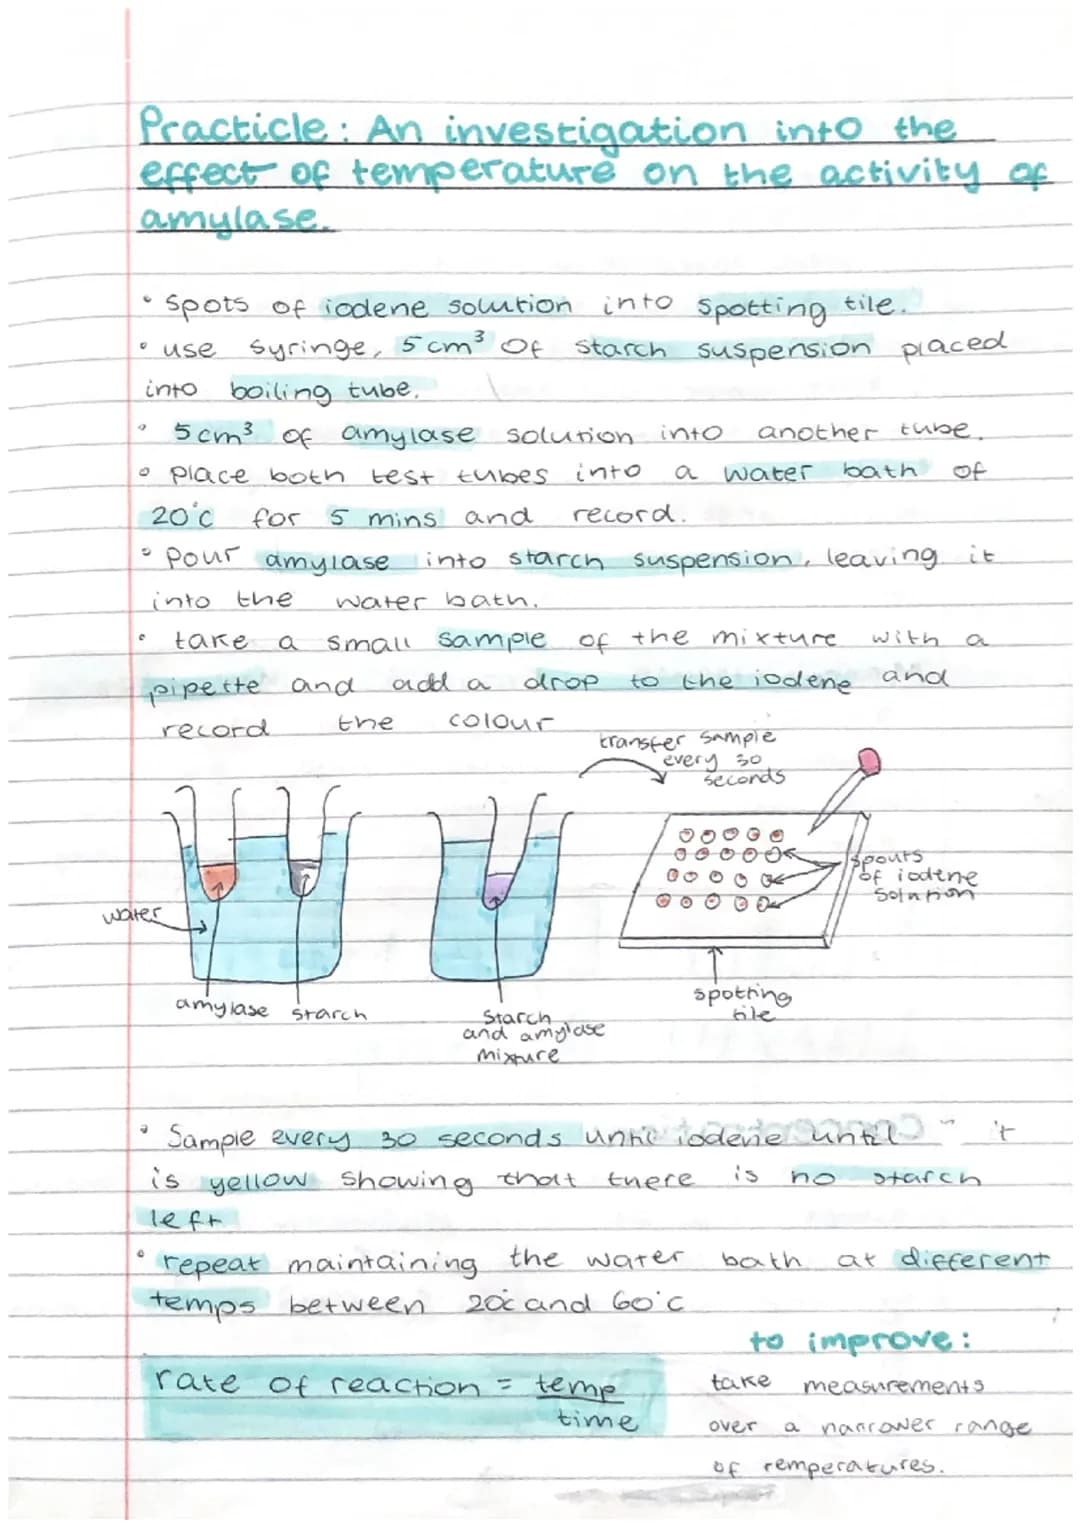 Practicle: An investigation into the
effect of temperature on the activity of
amylase.
• Spots of iodene solution into spotting tile.
• use syringe, 5cm³ of starch suspension placed
into boiling tube.
• 5cm³ of amylase solution into another tube.
• place both test tubes into a water bath of
20°c for 5 mins and record.
• Pour amylase into starch suspension, leaving it
into the water bath.
• take a small sample of the mixture with a
pipette and add a drop to the iodene and
record the colour
transfer sample
every 30
seconds
spouts
of iodene
solution
water
amylase starch
Starch
and amylase
mixture
spotting
tile
• Sample every 30 seconds until iodene until it
is yellow showing that there is no starch
left
• repeat maintaining the water bath at different
temps between 20°c and 60°c
to improve:
rate of reaction = temp
time
take measurements
over a narrower range
of temperatures.